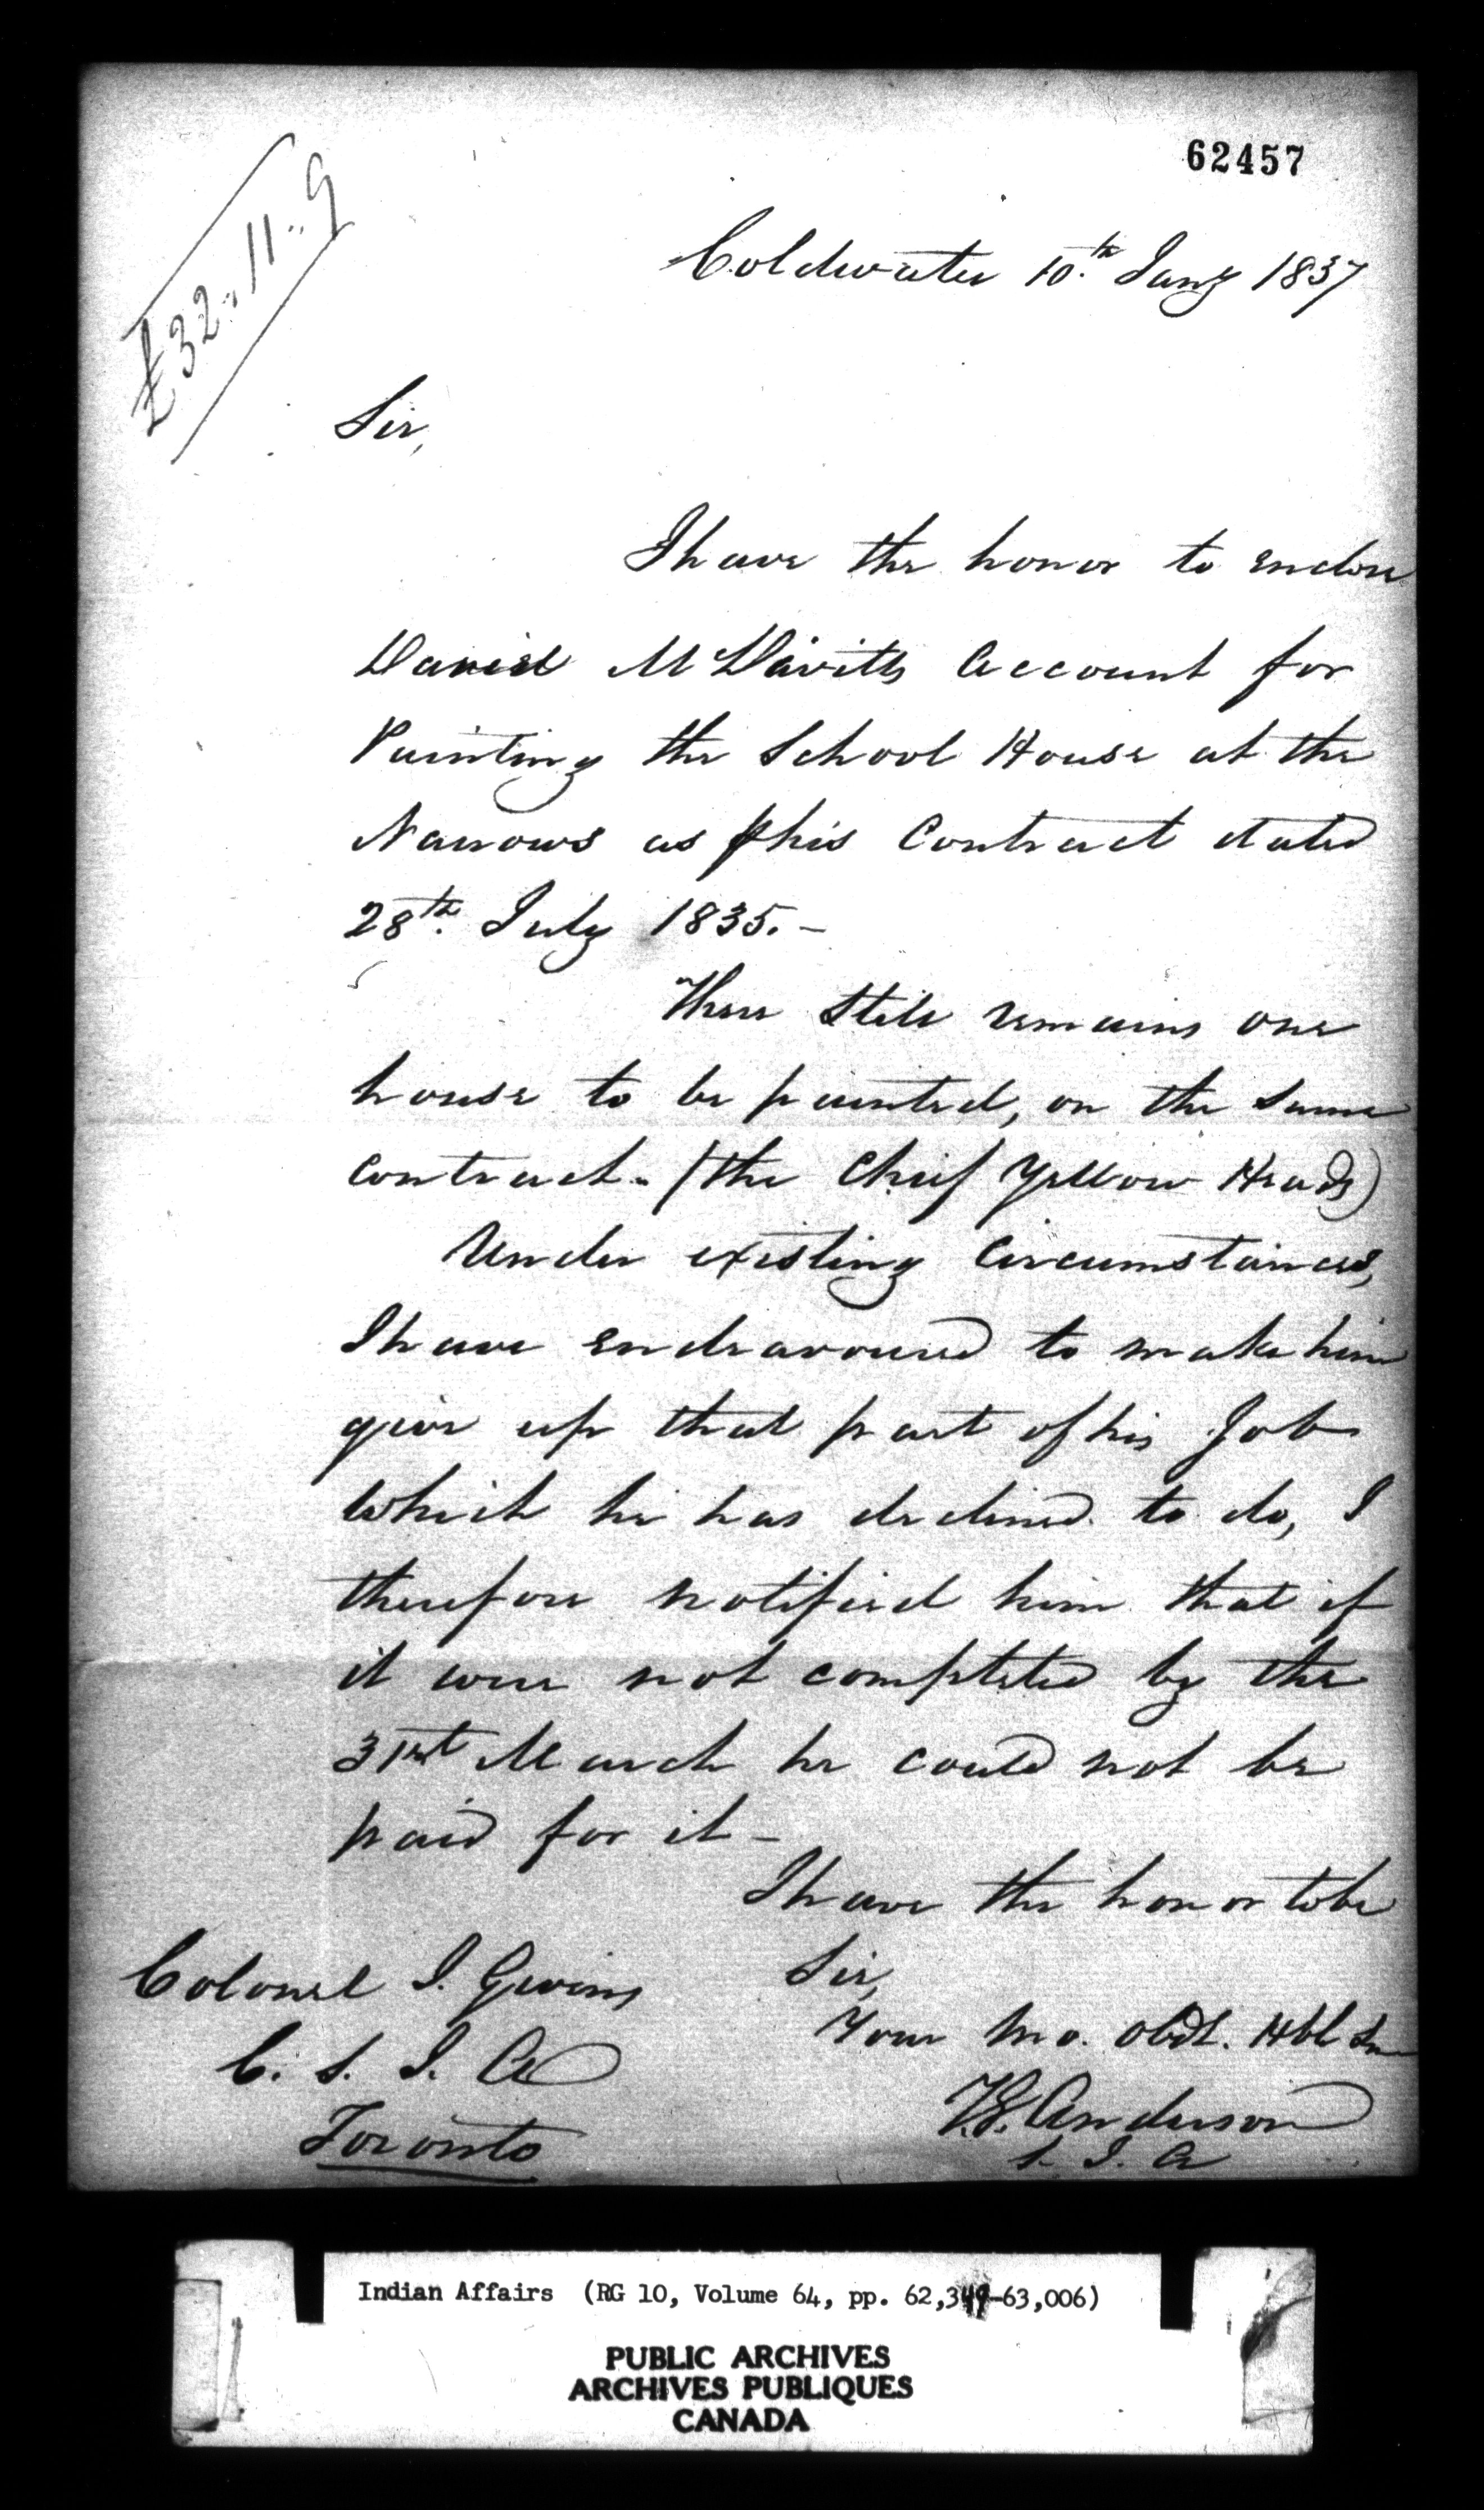 62457
£32,,11,,9
Coldwater 10th Jany 1837
Sir,
I have the honor to enclose
Daniel McDavitts Account for
Painting the School House at the
Narrows as p his Contract dated
28th July 1835.-
There still remains one
house to be painted, on the same
contract - (the Chief Yellow Heads)
Under existing Circumstances,
I have endeavoured to make him
give up that part of his Job
which he has declined to do, I
therefore notified him that if
it were not completed by the
31st March he could not be
paid for it -
I have the honor to be
Sir,
Your Mo. Obdt. Hbl
T.G. Anderson
S. I. A
Colonel J. Givins
C. S. I. A
Toronto
Indian Affairs (RG 10, Volume 64, pp. 62,349-63,006)
PUBLIC ARCHIVES
ARCHIVES PUBLIQUES
CANADA